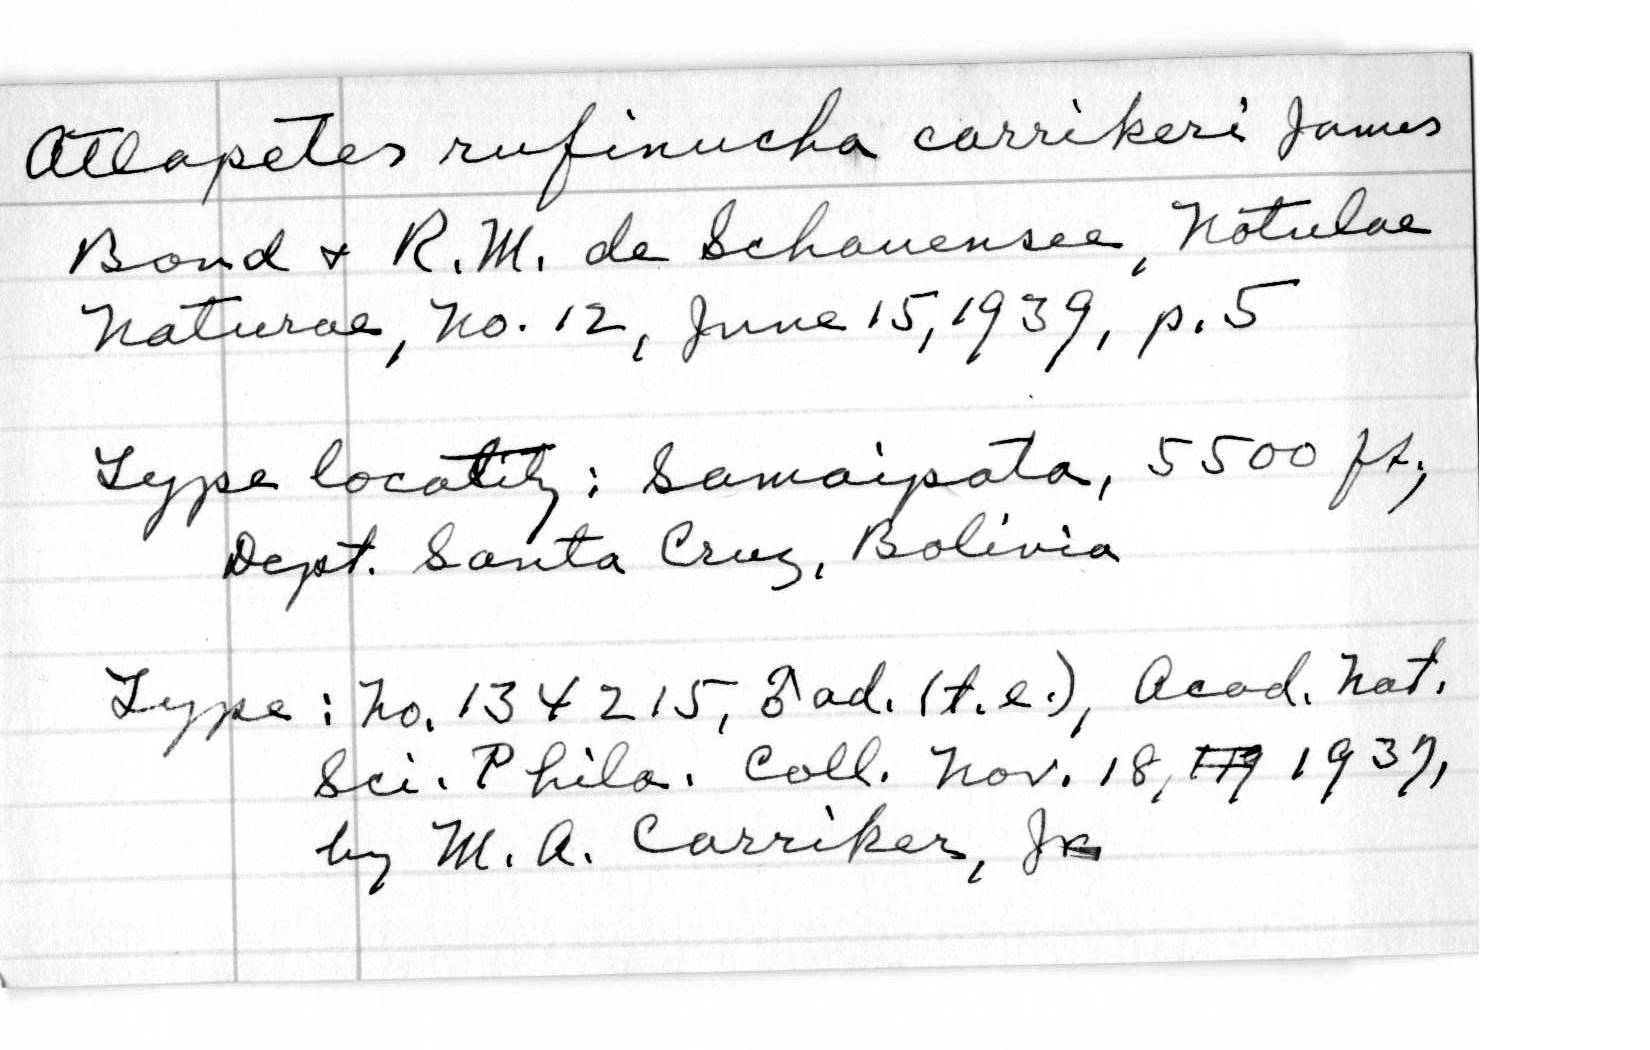 Atlapetes rufinucha carrikeri James
Bond & R. M. de Schauensee, Notulae
Naturae, No. 12, June 15, 1939, p. 5
Type locality: Samaipata, 5500 ft,
Dept. Santa Cruz, Bolivia
Type: No. 134215, ♂ ad. (t.e.), Acad. Nat.
Sci. Phila. Coll. Nov. 18, 1937,
by M. A. Carriker, Jr